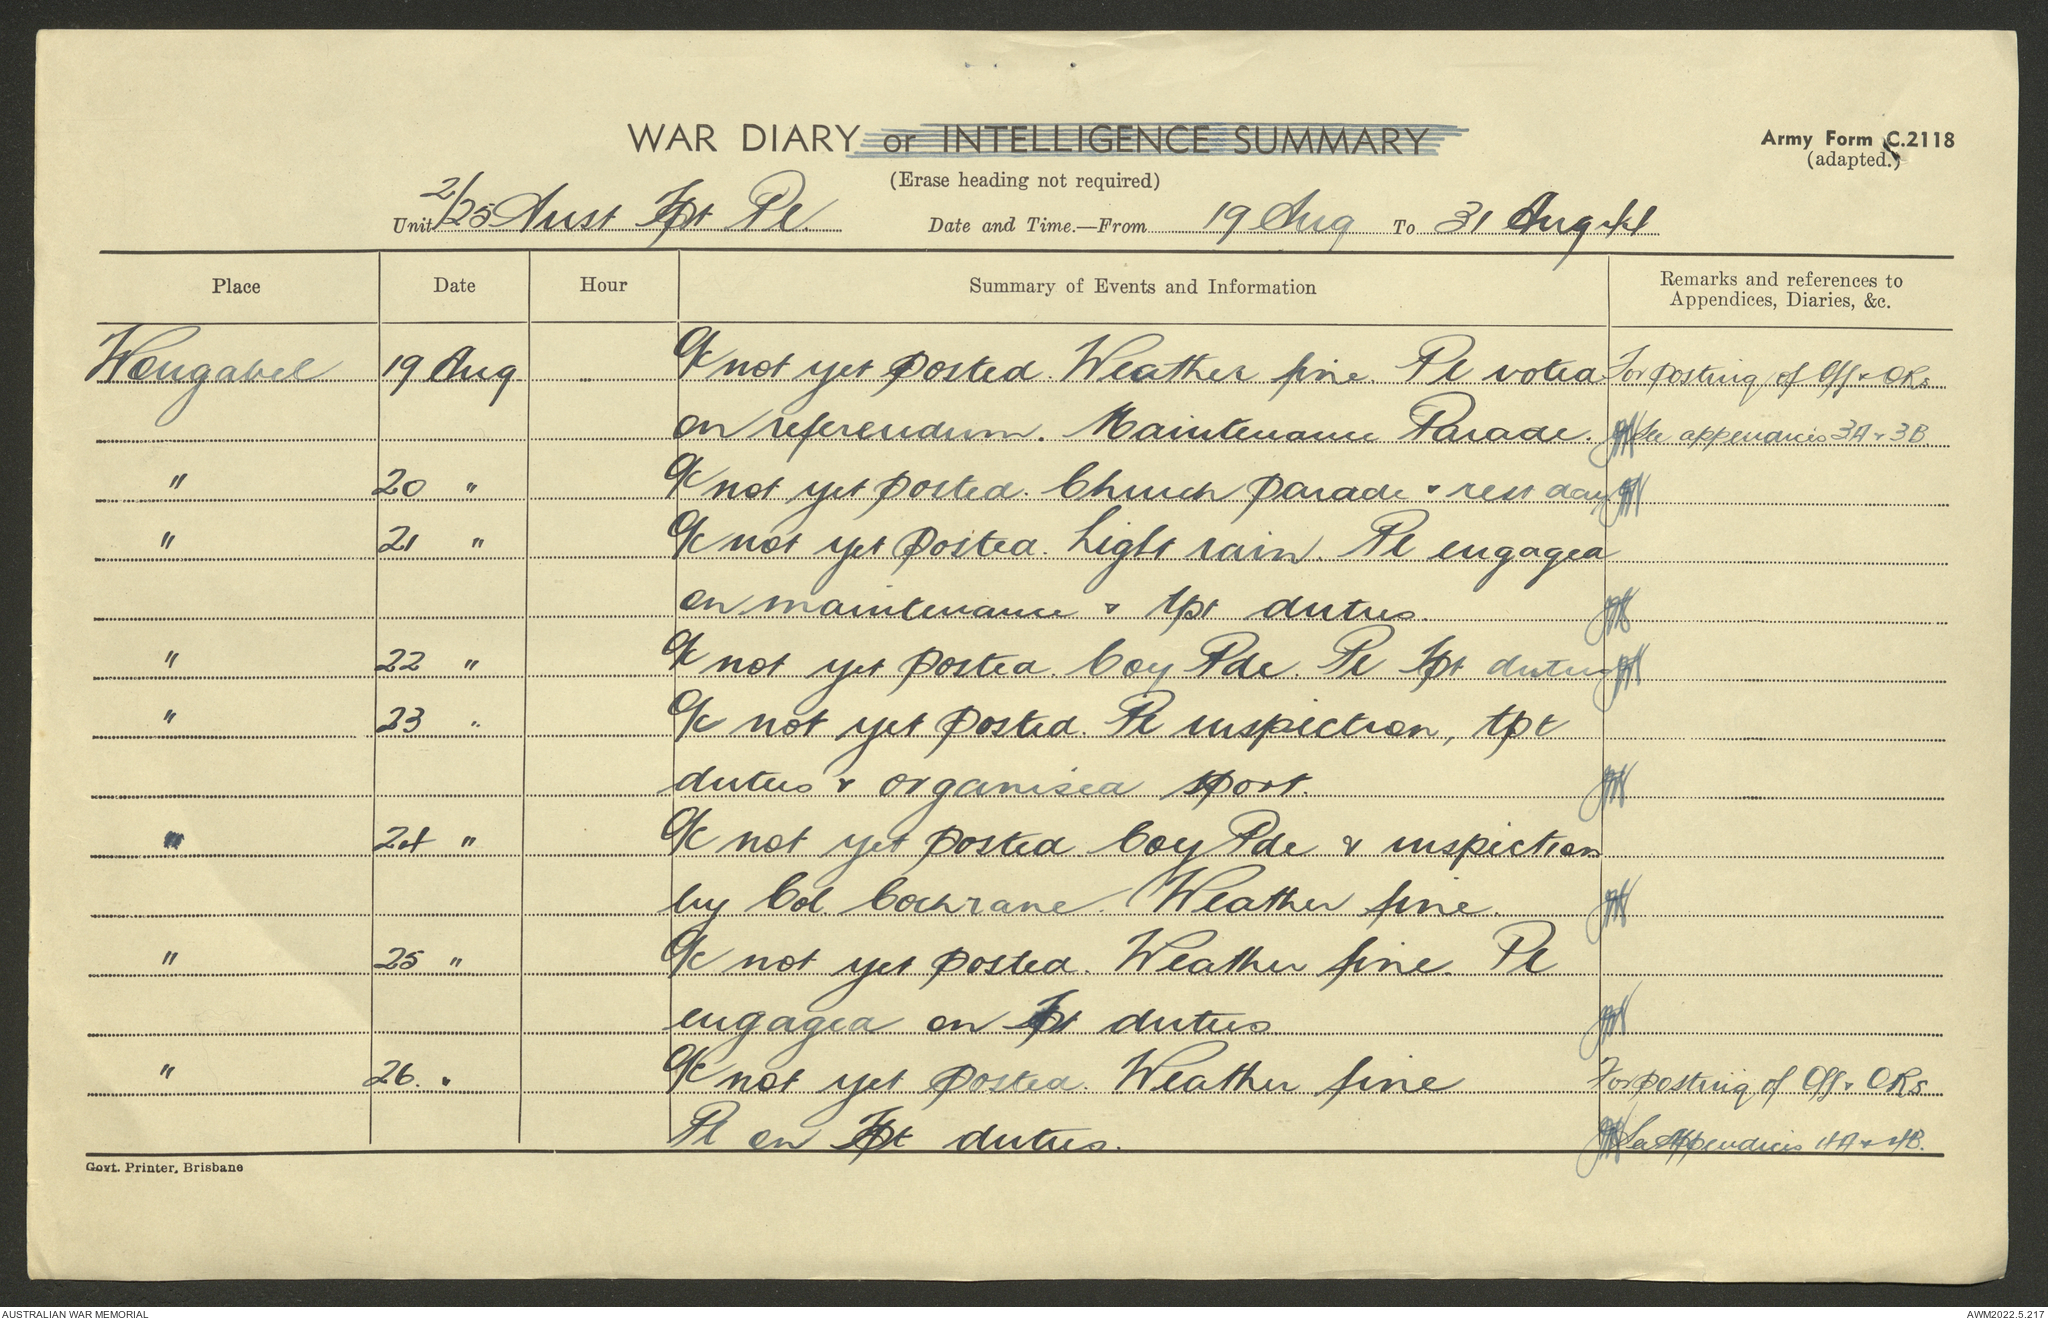 WAR DIARY or INTELLIGENCE SUMMARY
Army Form C.2118
(adapted.)
(Erase heading not required)
Unit 2/25 Aust Tpt Pl. Date and Time.—From 19 Aug To 31 Aug 44
Place Date Hour Summary of Events and Information Remarks and references to Appendices, Diaries, &c.
Wongabel 19 Aug O/C not yet posted. Weather fine. Pl voted For posting of Off & ORs
on referendum. Maintenance Parade. See appendices 3A & 3B.
" 20 " O/C not yet posted. Church parade & rest day
" 21 " O/C not yet posted. Light rain. Pl engaged
on maintenance & tpt duties.
" 22 " O/C not yet posted. Coy Pde. Pl Tpt duties
" 23 " O/C not yet posted. Pl inspection, tpt
duties & organised sport.
" 24 " O/C not yet posted Coy Pde & inspection
by Col. Cochrane. Weather fine.
" 25 " O/C not yet posted. Weather fine. Pl
engaged on Tpt duties
" 26. " O/C not yet posted. Weather fine For posting of Off & ORs
Pl on Tpt duties. See Appendices 4A & 4B.
Govt. Printer, Brisbane
AUSTRALIAN WAR MEMORIAL AWM2022.5.217